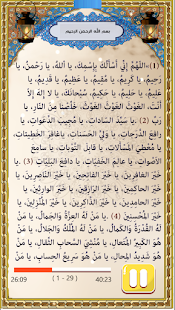 بسم الله الرحمن الرحيم
(1) اللَّهُمَّ إِنِّي أَسْأَلُكَ بِاسْمِكَ، يَا اللهُ، يَا رَحْمنُ، يَا
رَحِيمُ، يَا كَرِيمُ، يَا مُقِيمُ، يَا عَظِيمُ، يَا قَدِيمُ، يَا
عَلِيمُ، يَا حَلِيمُ، يَا حَكِيمُ، سُبْحَانَكَ يَا لا إلهَ إلاّ
أَنْتَ، الغَوْثَ الغَوْثَ، خَلِّصْنَا مِنَ النَّارِ، يَا
رَبِّ (2) يَا سَيِّدَ السَّادَاتِ، يَا مُجِيبَ الدَّعَوَاتِ، يَا
رَافِعَ الدَّرَجَاتِ، يَا وَلِيَّ الحَسَنَاتِ، يَا غَافِرَ الخَطِيئَاتِ،
يَا مُعْطِيَ المَسْأَلاتِ، يَا قَابِلَ التَّوْبَاتِ، يَا سَامِعَ
الأَصْوَاتِ، يَا عَالِمَ الخَفِيَّاتِ، يَا دَافِعَ البَلِيَّاتِ (3) يَا
خَيْرَ الغَافِرِينَ، يَا خَيْرَ الفَاتِحِينَ، يَا خَيْرَ النَّاصِرِينَ، يَا
خَيْرَ الحَاكِمِينَ، يَا خَيْرَ الرَّازِقِينَ، يَا خَيْرَ الوَارِثِينَ، يَا
خَيْرَ الحَامِدِينَ، يَا خَيْرَ الذَّاكِرِينَ، يَا خَيْرَ المُنْزِلِينَ، يَا
خَيْرَ المُحْسِنِينَ (4) يَا مَنْ لَهُ العِزَّةُ وَالجَمَالُ، يَا مَنْ
لَهُ القُدْرَةُ وَالكَمَالُ، يَا مَنْ لَهُ المُلْكُ وَالجَلالُ، يَا مَنْ
هُوَ الكَبِيرُ المُتَعَالِ، يَا مُنْشِئَ السَّحَابِ الثِّقَالِ، يَا مَنْ
هُوَ شَدِيدُ المِحَالِ، يَا مَنْ هُوَ سَرِيعُ الحِسَابِ، يَا
( 1 - 29 )
26:09 40:23